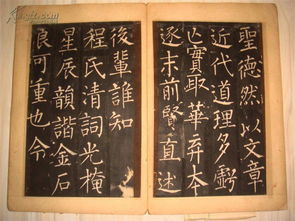 聖德然以文章
近代道理多虧
亡實取華弃本
逐末前賢直述
後輩誰知
程氏清詞光掩
星辰韻諧金石
良可重也令